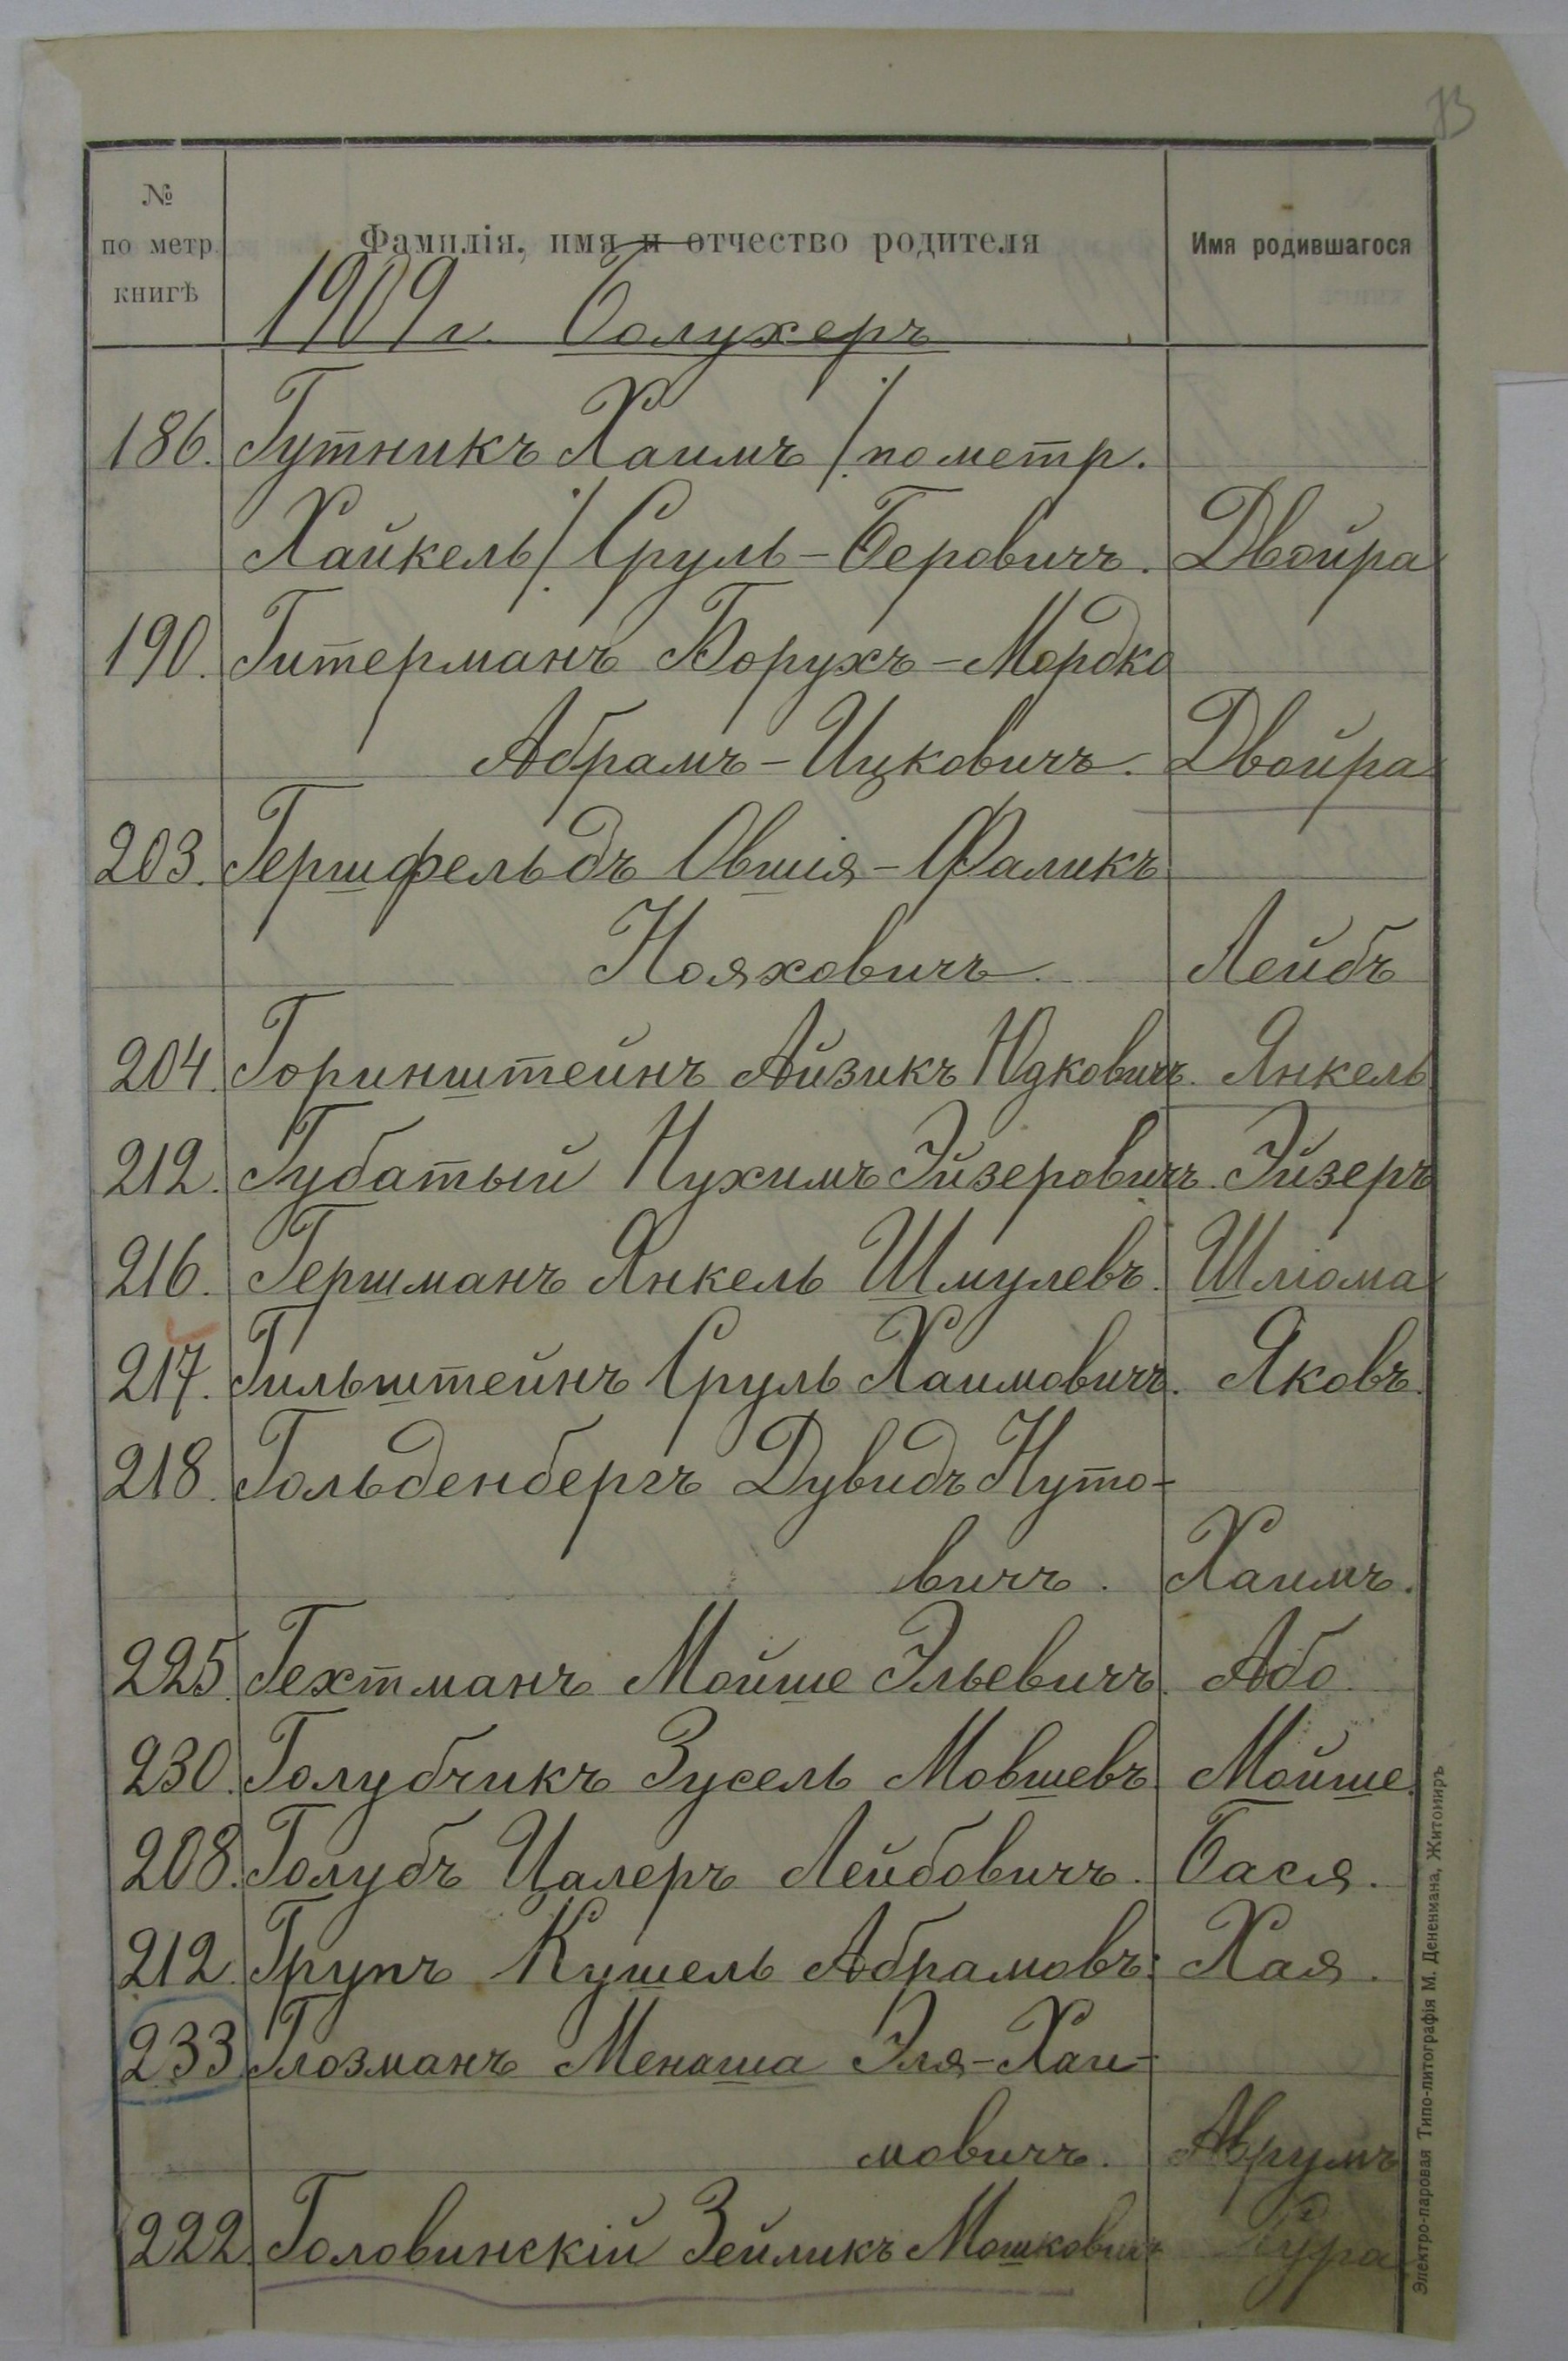 13
№ по метр. книгѣ
Фамилія, имя и отчество родителя
Имя родившагося
1909 г. Болухеръ
186. Гутникъ Хаимъ /по метр.
Хайкель/ Сруль-Беровичъ. Двойра
190. Гитерманъ Борухъ-Мордко
Абрамъ-Ицковичъ. Двойра
203. Гершфельдъ Овшія-Фаликъ
Нояховичъ. Лейбъ
204. Горинштейнъ Айзикъ Юдковичъ. Янкель
212. Губатый Нухимъ Эйзеровичъ. Эйзеръ
216. Гершманъ Янкель Шмулевъ. Шліома
217. Гильштейнъ Сруль Хаимовичъ. Яковъ.
218. Гольденбергъ Дувидъ Нуто-
вичъ. Хаимъ.
225. Гехтманъ Мойше Эльевичъ. Або.
230. Голубчикъ Зусель Мовшевъ. Мойше.
208. Голубъ Цалеръ Лейбовичъ. Бася.
212. Групъ Кушель Абрамовъ. Хая.
233 Глозманъ Менаша Эля-Хаи-
мовичъ. Аврумъ
222. Головинскій Зейликъ Мошковичъ
Электро-паровая Типо-литографія М. Дененмана, Житомиръ